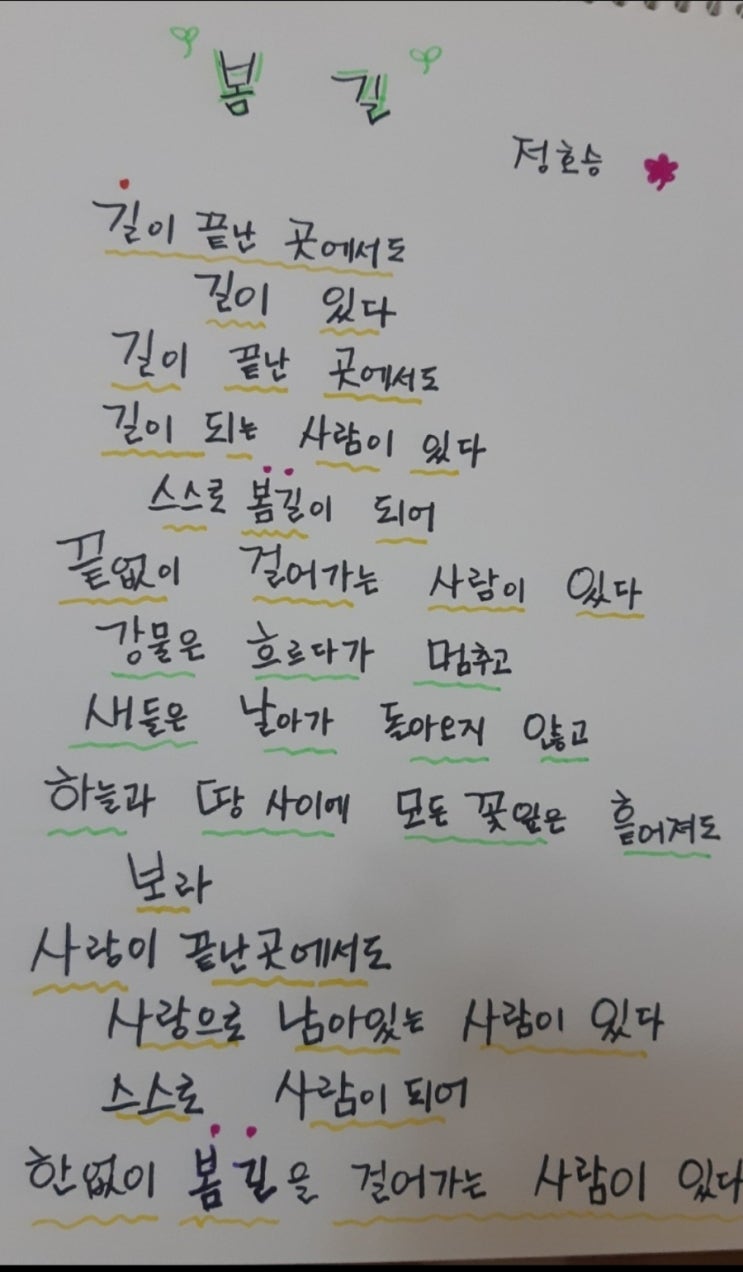 봄 길
정호승
길이 끝난 곳에서도
길이 있다
길이 끝난 곳에서도
길이 되는 사람이 있다
스스로 봄길이 되어
끝없이 걸어가는 사람이 있다
강물은 흐르다가 멈추고
새들은 날아가 돌아오지 않고
하늘과 땅 사이에 모든 꽃잎은 흩어져도
보라
사랑이 끝난곳에서도
사랑으로 남아있는 사람이 있다
스스로 사람이 되어
한없이 봄길을 걸어가는 사람이 있다